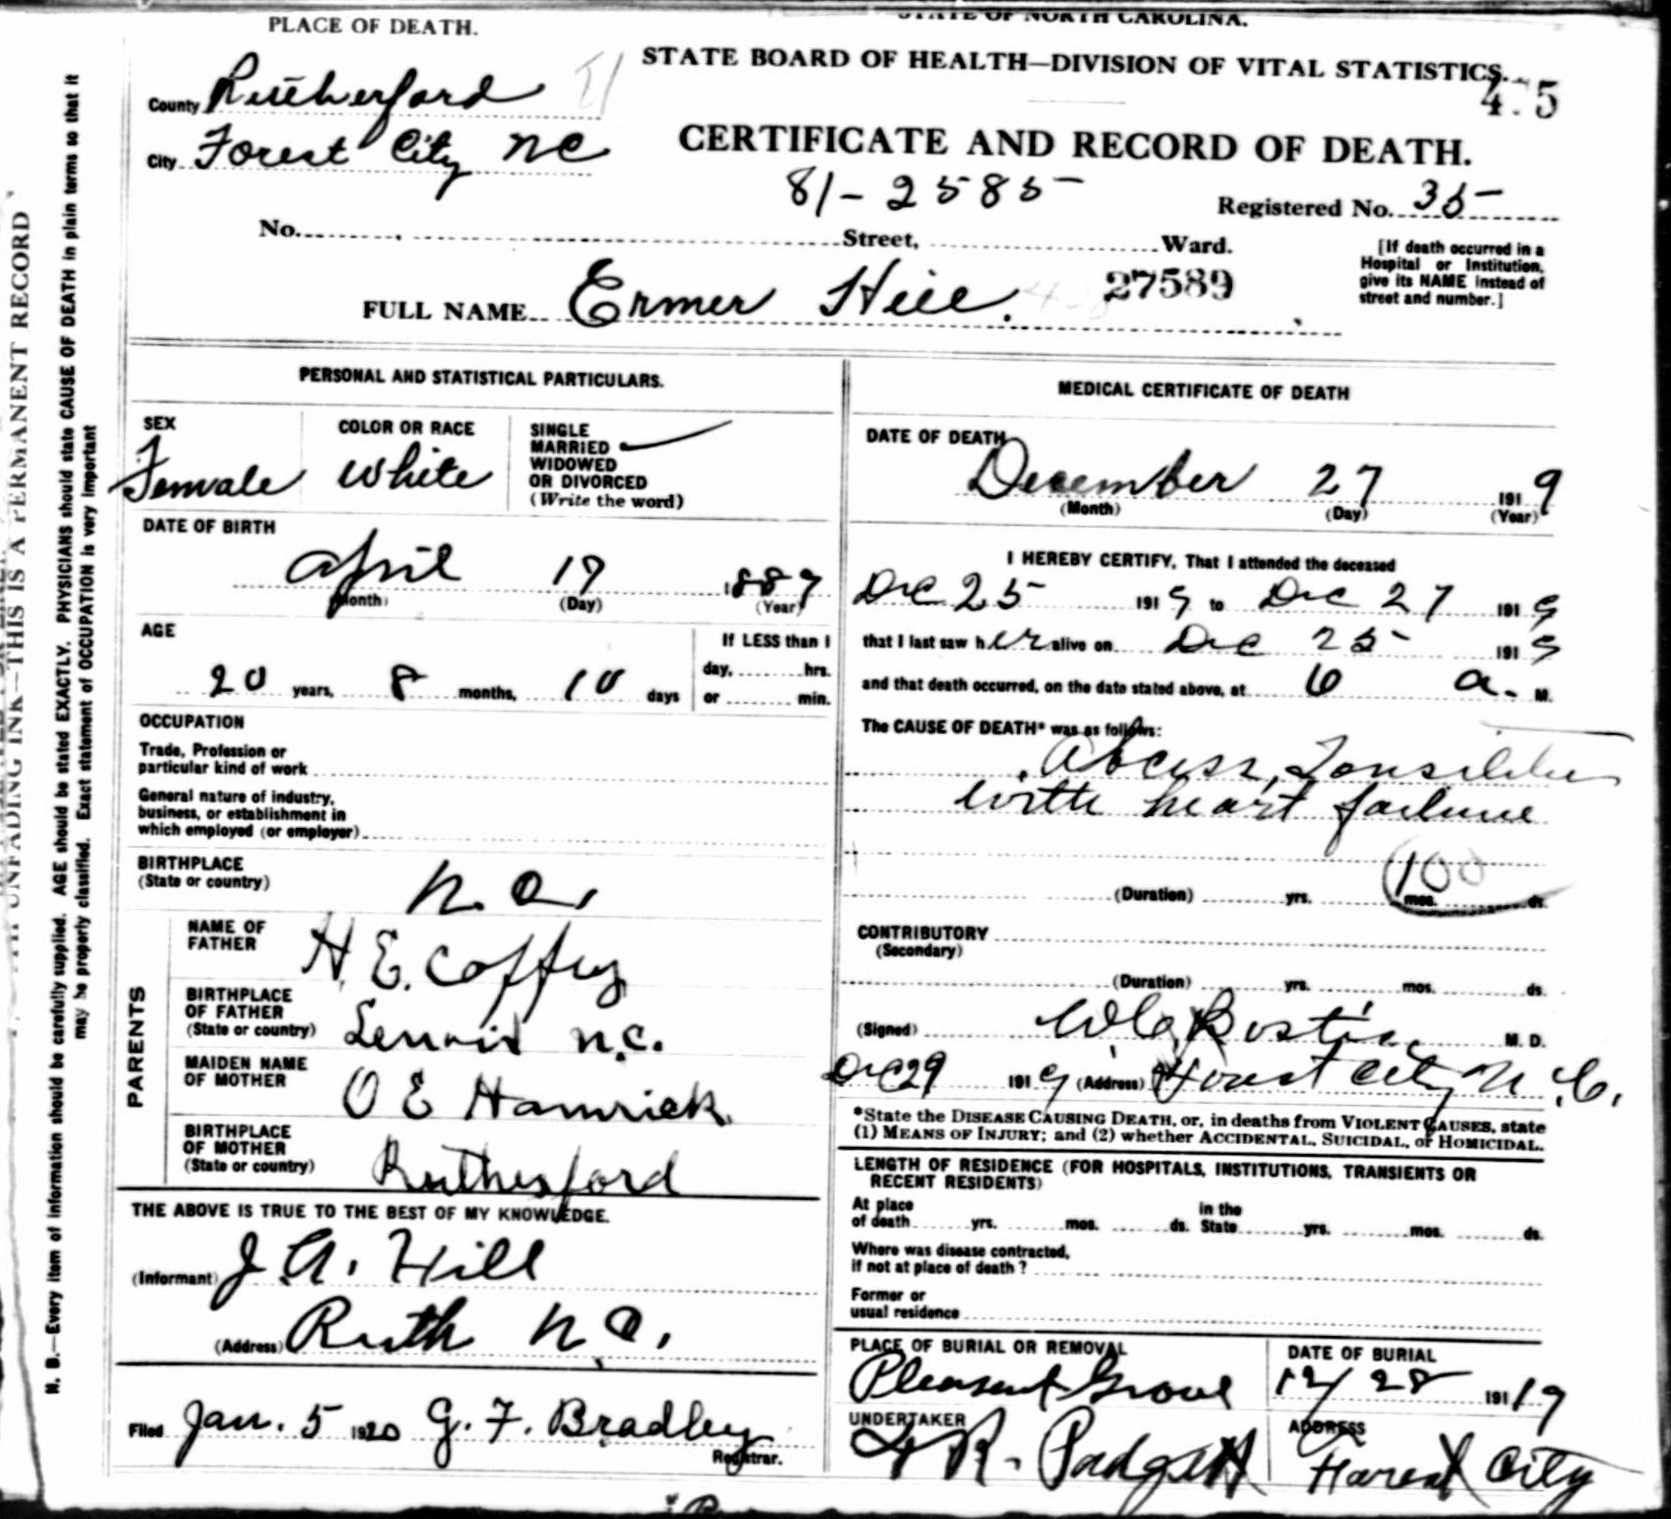 PLACE OF DEATH.
STATE OF NORTH CAROLINA.
STATE BOARD OF HEALTH—DIVISION OF VITAL STATISTICS.
County Rutherford
City Forest City NC
CERTIFICATE AND RECORD OF DEATH.
81-2585
Registered No. 35
No. Street, Ward.
[If death occurred in a
Hospital or Institution,
give its NAME instead of
street and number.]
27589
FULL NAME Ermer Hill.
PERSONAL AND STATISTICAL PARTICULARS.
SEX
Female
COLOR OR RACE
White
SINGLE
MARRIED
WIDOWED
OR DIVORCED
(Write the word)
DATE OF BIRTH
April 17 1889
(Month) (Day) (Year)
AGE
20 years, 8 months, 10 days
If LESS than 1
day, hrs.
or min.
OCCUPATION
Trade, Profession or
particular kind of work
General nature of industry,
business, or establishment in
which employed (or employer)
BIRTHPLACE
(State or country)
N.C.
PARENTS
NAME OF
FATHER
H. E. Coffey
BIRTHPLACE
OF FATHER
(State or country)
n.c.
MAIDEN NAME
OF MOTHER
O E Hamrick
BIRTHPLACE
OF MOTHER
(State or country)
Rutherford
THE ABOVE IS TRUE TO THE BEST OF MY KNOWLEDGE.
(Informant) J. A. Hill
(Address) Ruth N.C.
Filed Jan. 5 1920 G. F. Bradley
Registrar.
MEDICAL CERTIFICATE OF DEATH
DATE OF DEATH
December 27 1919
(Month) (Day) (Year)
I HEREBY CERTIFY, That I attended the deceased
Dec 25 1919 to Dec 27 1919
that I last saw her alive on Dec 25 1919
and that death occurred, on the date stated above, at 6 a. M.
The CAUSE OF DEATH* was as follows:
Abcess, Tonsilitis
with heart failure
100
(Duration) yrs. mos. ds.
CONTRIBUTORY
(Secondary)
(Duration) yrs. mos. ds.
(Signed) Bostic M. D.
Dec 29 1919 (Address) Forest City N.C.
*State the DISEASE CAUSING DEATH, or, in deaths from VIOLENT CAUSES, state
(1) MEANS OF INJURY; and (2) whether ACCIDENTAL, SUICIDAL, or HOMICIDAL.
LENGTH OF RESIDENCE (FOR HOSPITALS, INSTITUTIONS, TRANSIENTS OR
RECENT RESIDENTS)
At place
of death yrs. mos. ds.
in the
State yrs. mos. ds.
Where was disease contracted,
if not at place of death?
Former or
usual residence
PLACE OF BURIAL OR REMOVAL
Pleasant Grove
DATE OF BURIAL
12/28 19119
UNDERTAKER
R. Padgett
ADDRESS
Forest City
N. B.—Every item of information should be carefully supplied. AGE should be stated EXACTLY. PHYSICIANS should state CAUSE OF DEATH in plain terms so that it
may be properly classified. Exact statement of OCCUPATION is very important
UNFADING INK—THIS IS A PERMANENT RECORD